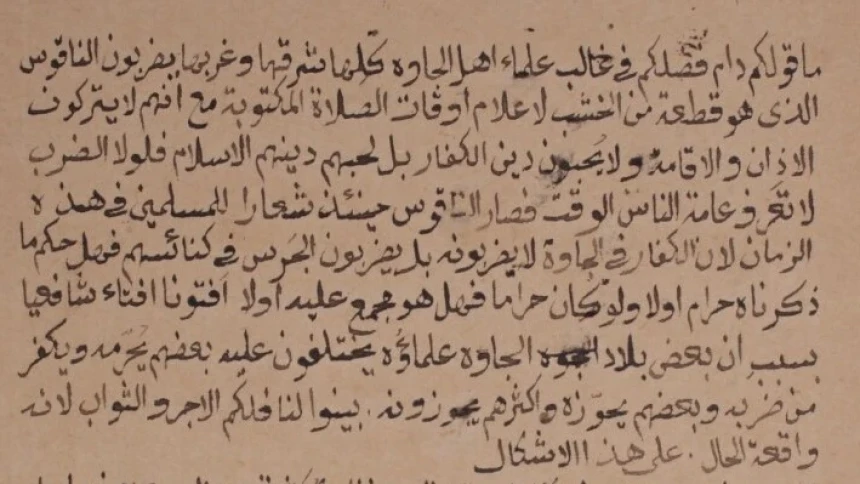 ما قولكم دام فضلكم في غالب علماء اهل الجاوه كلها شرقها وغربها يضربون الناقوس
الذى هو قطعة من الخشب لاعلام اوقات الصلاة المكتوبة مع انهم لا يتركون
الاذان والاقامة ولا يحبون دين الكفار بل لحبهم دينهم الاسلام فلولا الضرب
لا تعرف عامة الناس الوقت فصار الناقوس حينئذ شعارا للمسلمين في هذه
الزمان لان الكفار في الجاوة لا يضربونه بل يضربون الجرس في كنائسهم فهل حكم ما
ذكرناه حرام اولا ولو كان حراما فهل هو مجمع عليه اولا افتونا افتاء شافعيا
بسبب ان بعض بلاد الجاوه علماؤه يختلفون عليه بعضهم يحرمه ويكفر
من ضربه وبعضهم يجوزه واكثرهم يجوزونه . بينوا لنا فلكم الاجر والثواب لانه
واقعة الحال . على هذا الاشكال